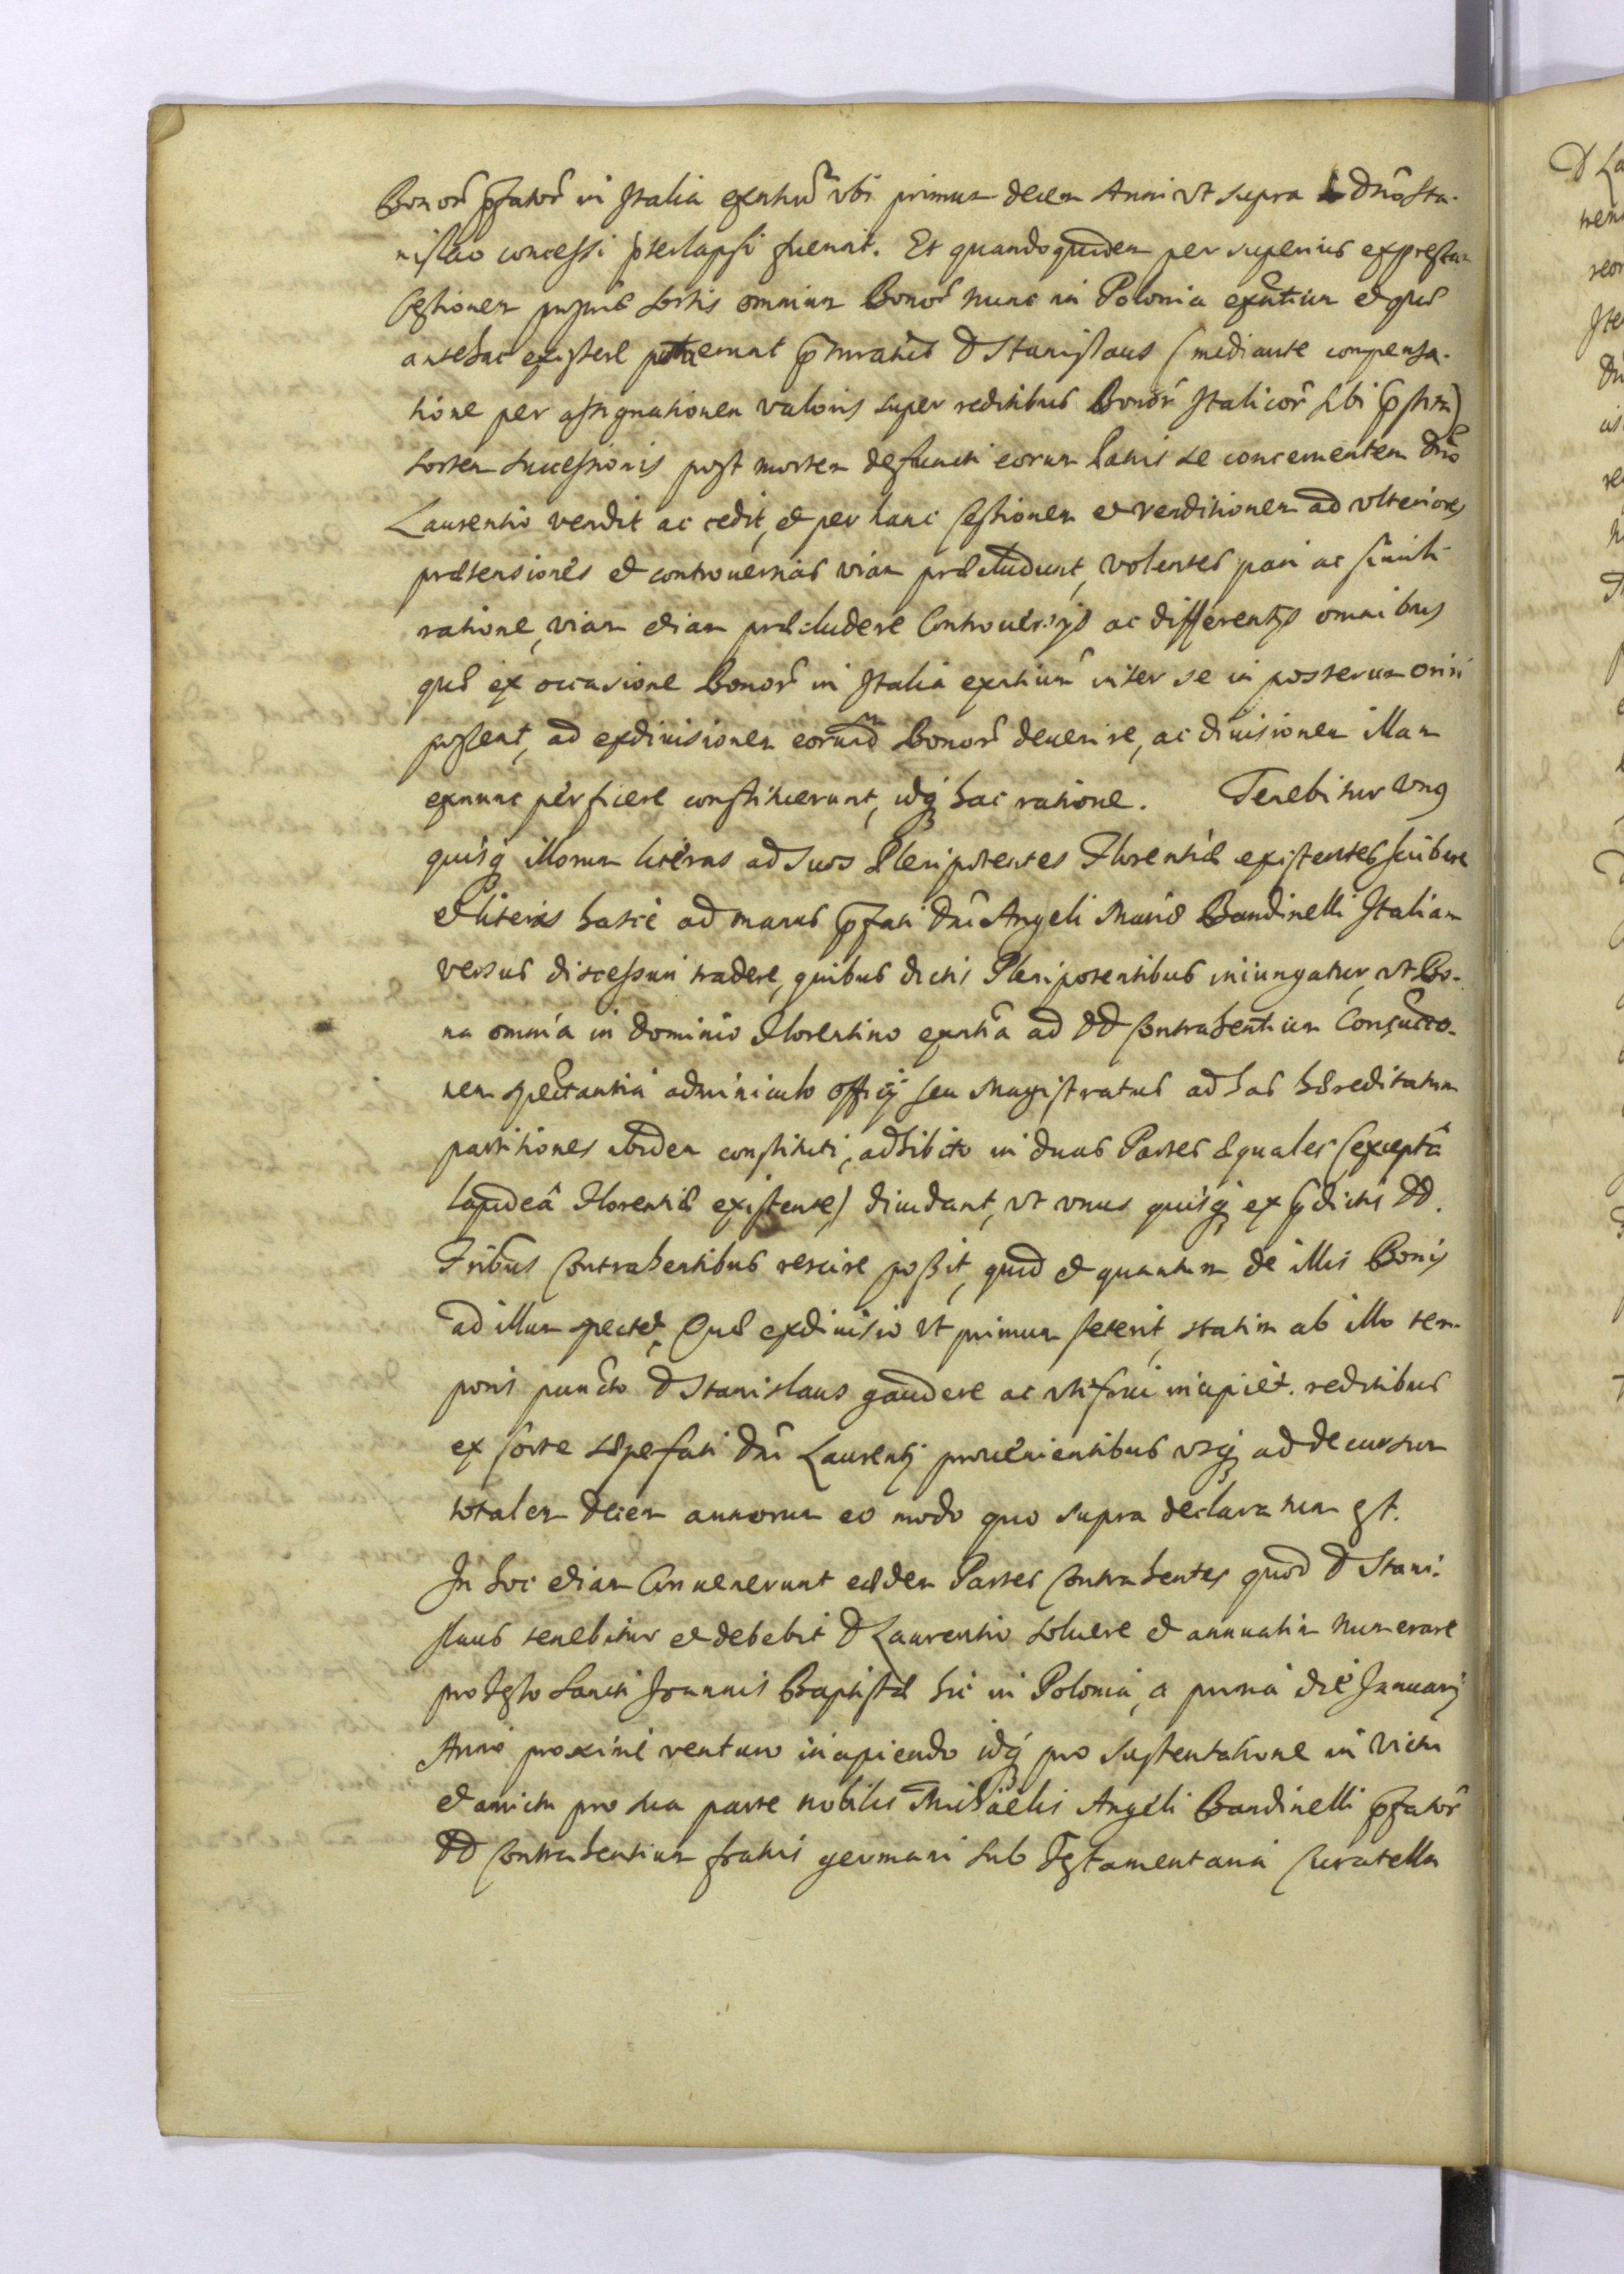 Bonor p̄fator in Italia exn̄tiu vbi primum decem Anni vt supra Dn̄o Sta-
nislao concessi p̄terlapsi fuerint. Et quandoquidem per superius expressam
Cessionem sortis omnium Bonor nunc in Polonia exn̄tium et quæ
antehac existere potuerunt D Stanislaus (mediante compensa-
tione per assignationem valoris super reditibus Bonor Italicor sibi
sortem successionis post mortem defuncti eorum Patris se concernentem Dn̄o
Laurentio vendit ac cedit, et per hanc Cessionem et venditionem ad vlteriores
prætensiones et controuersias viam præcludunt, volentes pari ac simili
ratione, viam etiam præcludere Controuersijs ac differentijs omnibus
quæ ex occasione Bonor in Italia exn̄tium inter se in posterum oriri
possent, ad exdiuisionem eorund Bonor deuenire, ac diuisionem illam
exnunc perficere constituerunt, idq hac ratione. Tenebitur vnus
quisq illorum literas ad suos Plenipotentes Florentiæ existentes scribere
et literas hasce ad manus p̄fati Dn̄i Angeli Mariæ Bandinelli Italiam
versus discessuri tradere, quibus dictis Plenipotentibus iniungatur, vt Bo-
na omnia in Dominio Florentino exn̄tia ad DD Contrahentium
nem spectantia adminiculo officij seu Magistratus ad has hæreditatum
partitiones ibidem constituti, adhibito in duas Partes æquales (exceptâ
lapideâ Florentiæ existente) diuidant, vt vnus quisq ex p̄dictis DD.
Fribus Contrahentibus rescire possit, quid et quantum de illis Bonis
ad illum spectet, Quæ exdiuisio vt primum steterit, statim ab illo tem-
poris puncto D Stanislaus gaudere ac vtifrui incipiet reditibus
ex sorte sæpefati Dn̄i Laurentij prouenientibus vsq ad decursum
totalem decem annorum eo modo quo supra declaratum est.
In hoc etiam Conuenerunt eædem Partes Contrahentes quod D Stani-
slaus tenebitur et debebit D Laurentio soluere et annuatim numerare
pro Festo Sancti Joannis Baptistæ hic in Polonia, a prima die Januarij
Anno proximè venturo incipiendo idq pro sustentatione in victu
et amictu pro sua parte nobilis Michaëlis Angeli Bandinelli p̄fator
DD Contrahentium fratris germani sub Testamentaria Curatella